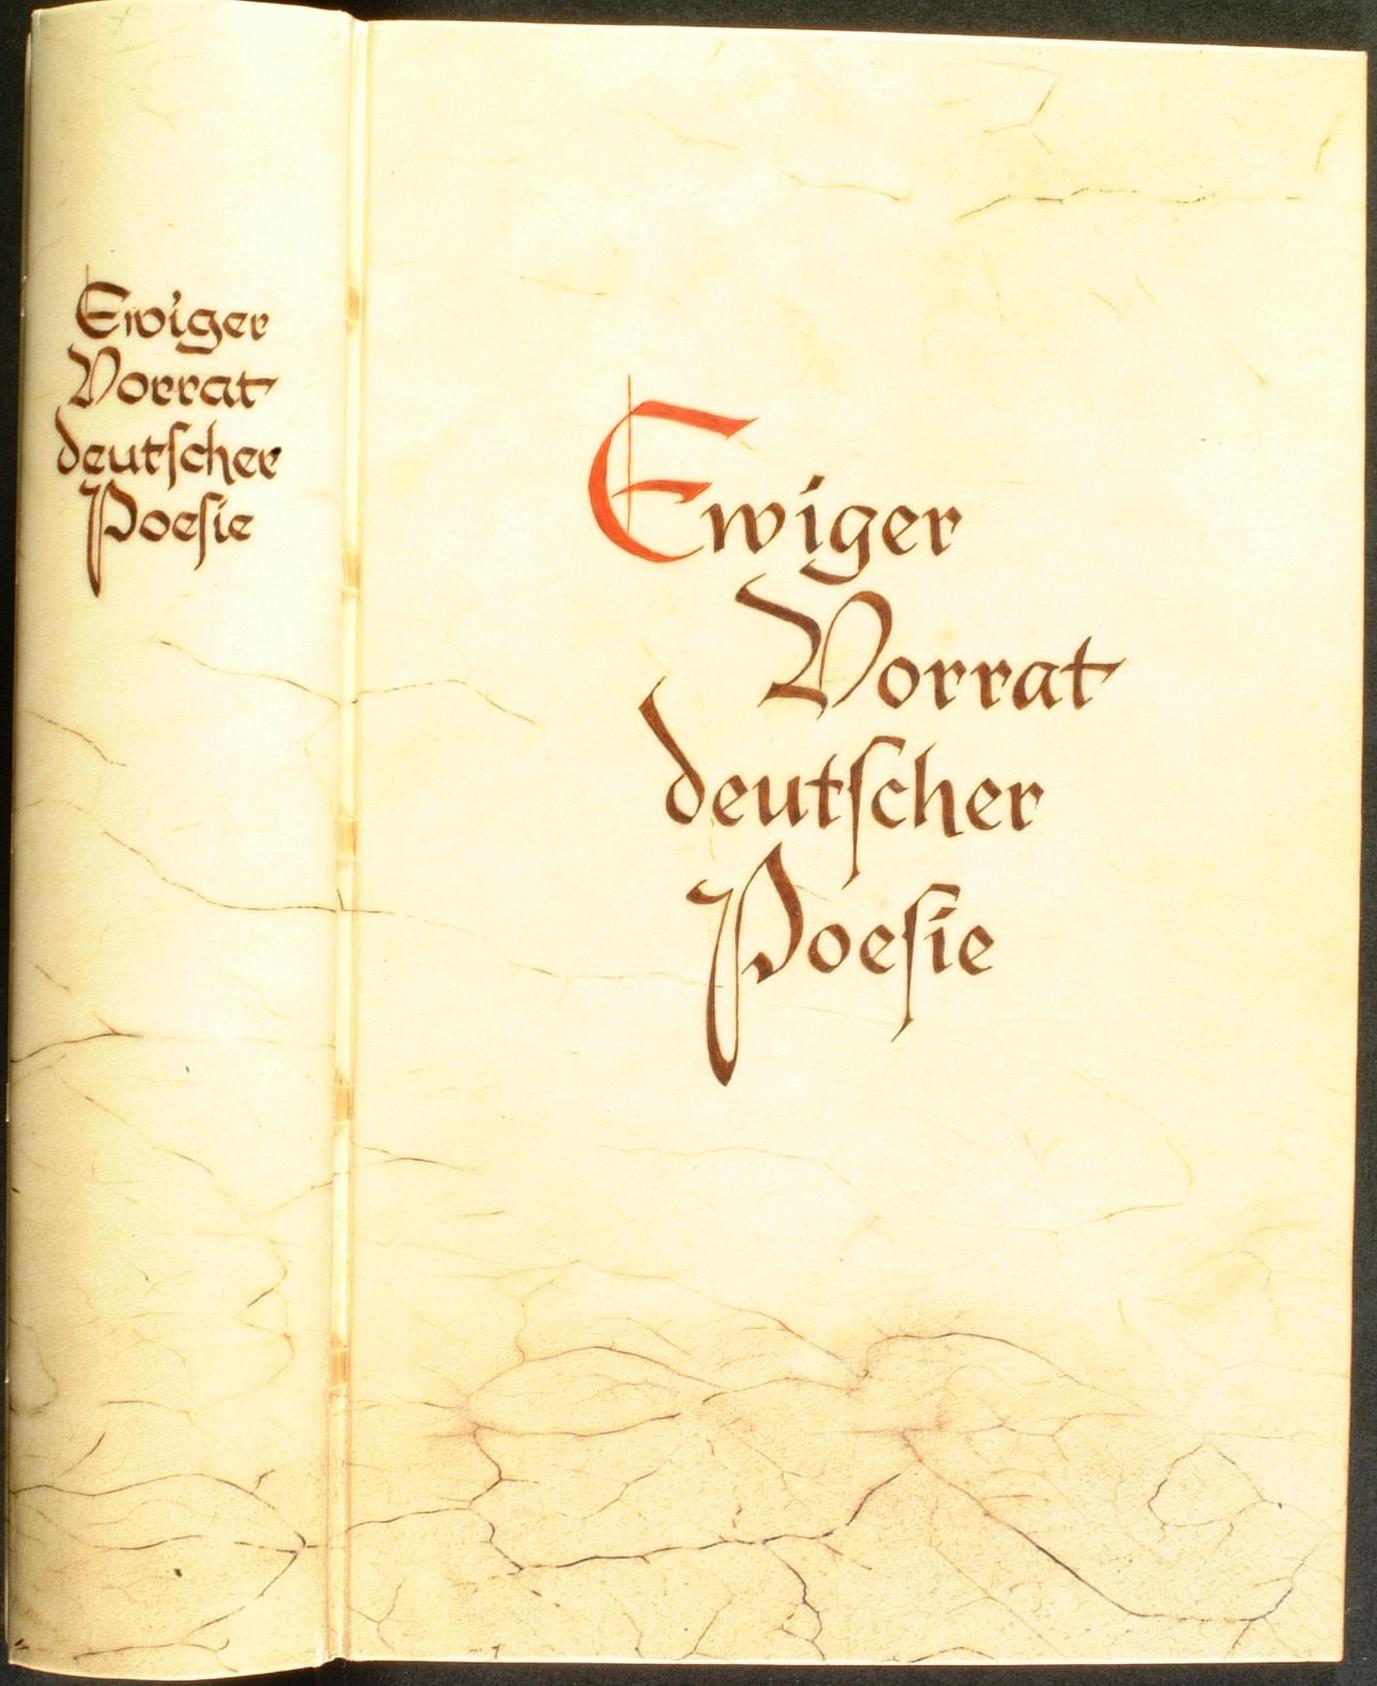 Ewiger
Vorrat
deutſcher
Poeſie
Ewiger
Vorrat
deutſcher
Poeſie